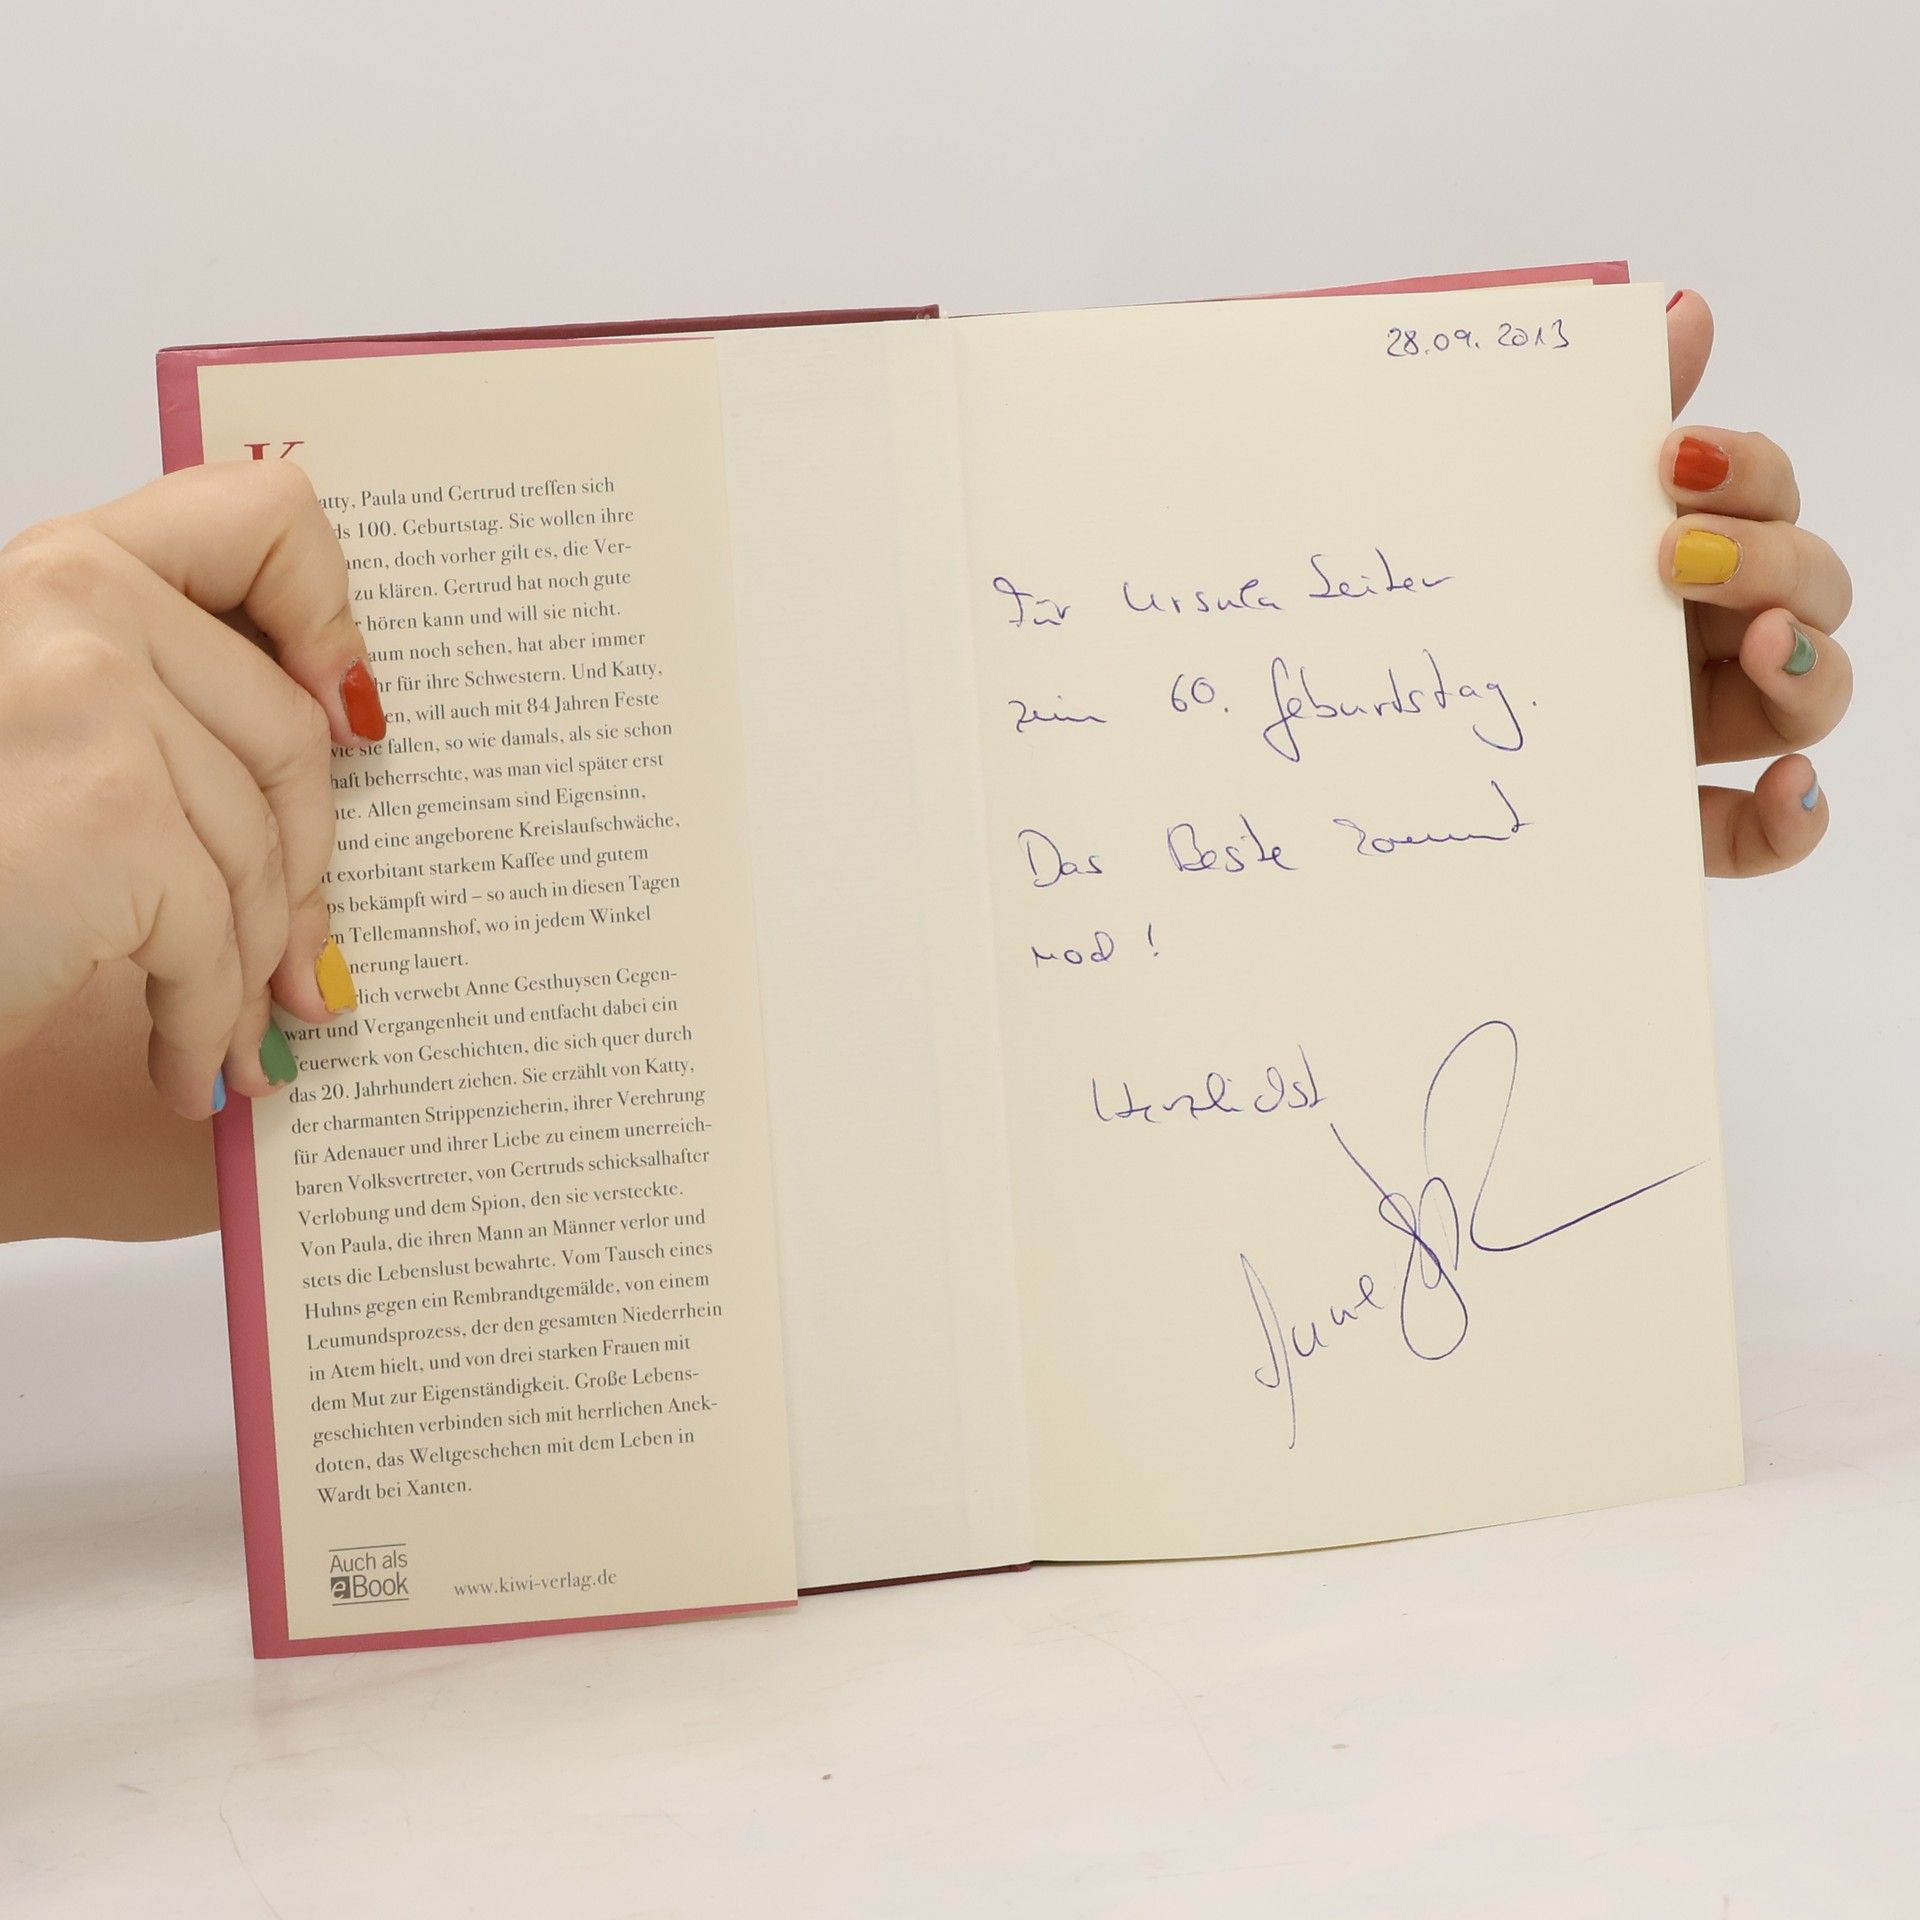 K
atty, Paula und Gertrud treffen sich
ds 100. Geburtstag. Sie wollen ihre
anen, doch vorher gilt es, die Ver-
zu klären. Gertrud hat noch gute
r hören kann und will sie nicht.
aum noch sehen, hat aber immer
hr für ihre Schwestern. Und Katty,
en, will auch mit 84 Jahren Feste
wie sie fallen, so wie damals, als sie schon
haft beherrschte, was man viel später erst
nte. Allen gemeinsam sind Eigensinn,
und eine angeborene Kreislaufschwäche,
it exorbitant starkem Kaffee und gutem
ps bekämpft wird – so auch in diesen Tagen
m Tellemannshof, wo in jedem Winkel
nerung lauert.
rlich verwebt Anne Gesthuysen Gegen-
wart und Vergangenheit und entfacht dabei ein
Feuerwerk von Geschichten, die sich quer durch
das 20. Jahrhundert ziehen. Sie erzählt von Katty,
der charmanten Strippenzieherin, ihrer Verehrung
für Adenauer und ihrer Liebe zu einem unerreich-
baren Volksvertreter, von Gertruds schicksalhafter
Verlobung und dem Spion, den sie versteckte.
Von Paula, die ihren Mann an Männer verlor und
stets die Lebenslust bewahrte. Vom Tausch eines
Huhns gegen ein Rembrandtgemälde, von einem
Leumundsprozess, der den gesamten Niederrhein
in Atem hielt, und von drei starken Frauen mit
dem Mut zur Eigenständigkeit. Große Lebens-
geschichten verbinden sich mit herrlichen Anek-
doten, das Weltgeschehen mit dem Leben in
Wardt bei Xanten.
Auch als
eBook
www.kiwi-verlag.de
28.09.2013
Für Ursula
zum 60. Geburtstag.
Das Beste kommt
noch!
Herzlichst
Anne